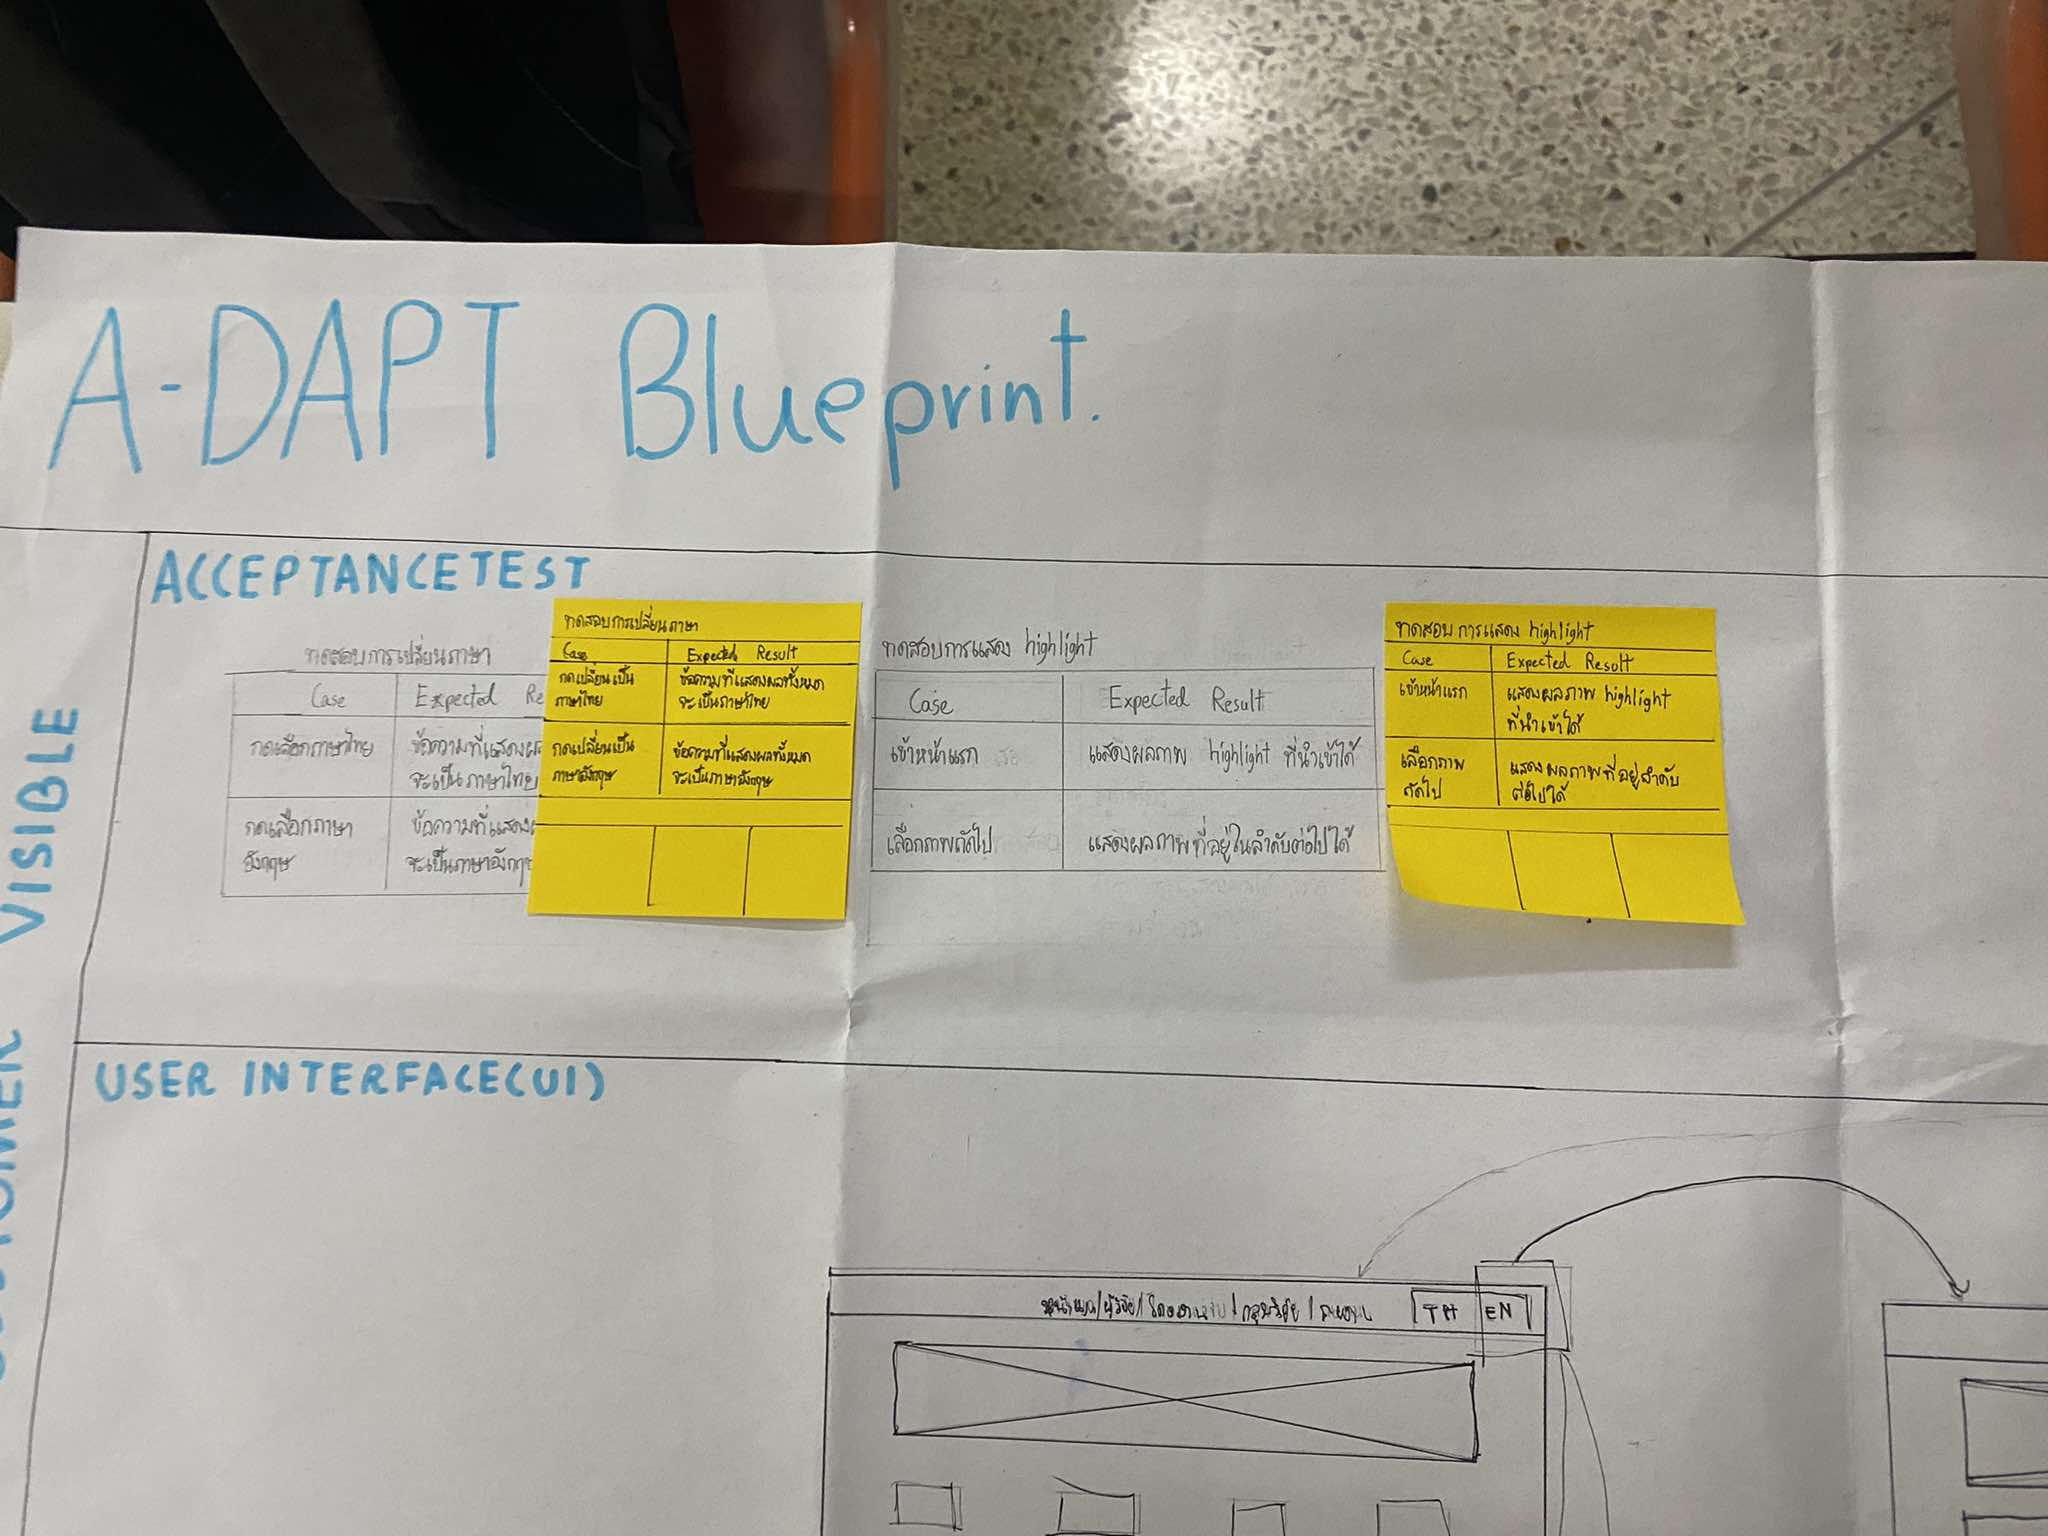 A-DAPT Blueprint.
CUSTOMER VISIBLE
ACCEPTANCE TEST
ทดสอบการเปลี่ยนภาษา
Case
Expected Re
กดเลือกภาษาไทย
ข้อความที่แสดงผล
จะเป็นภาษาไทย
กดเลือกภาษา
อังกฤษ
ข้อความที่แสดง
จะเป็นภาษาอังกฤษ
ทดสอบการเปลี่ยนภาษา
Case
Expected Result
กดเปลี่ยนเป็น
ภาษาไทย
ข้อความที่แสดงผลทั้งหมด
จะเป็นภาษาไทย
กดเปลี่ยนเป็น
ภาษาอังกฤษ
ข้อความที่แสดงผลทั้งหมด
จะเป็นภาษาอังกฤษ
ทดสอบการแสดง highlight
Case
Expected Result
เข้าหน้าแรก
แสดงผลภาพ highlight ที่นำเข้าได้
เลือกภาพถัดไป
แสดงผลภาพที่อยู่ในลำดับต่อไปได้
ทดสอบการแสดง highlight
Case
Expected Result
เข้าหน้าแรก
แสดงผลภาพ highlight
ที่นำเข้าได้
เลือกภาพ
ถัดไป
แสดงผลภาพที่อยู่ลำดับ
ต่อไปได้
USER INTERFACE(UI)
หน้าแรก/ผู้วิจัย/
TH EN